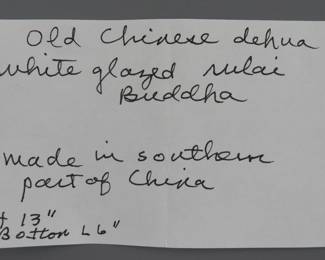 Old Chinese dehua
white glazed rulai
Buddha
made in southern
part of China
t 13"
Botton L 6"